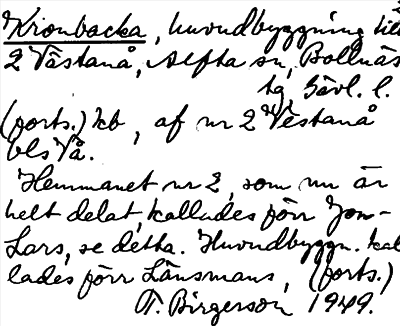 Kronbacka, huvudbyggning till
2 Västanå, Alfta sn, Bollnäs
tg, Gävl. l.
(forts.) kb, af nr 2 Västanå
bls Vå.
Hemmanet nr 2, som nu är
helt delat, kallades förr Jon-
Lars, se detta. Huvudbyggn. kal
lades förr Länsmans, (forts.)
T. Birgerson 1949.